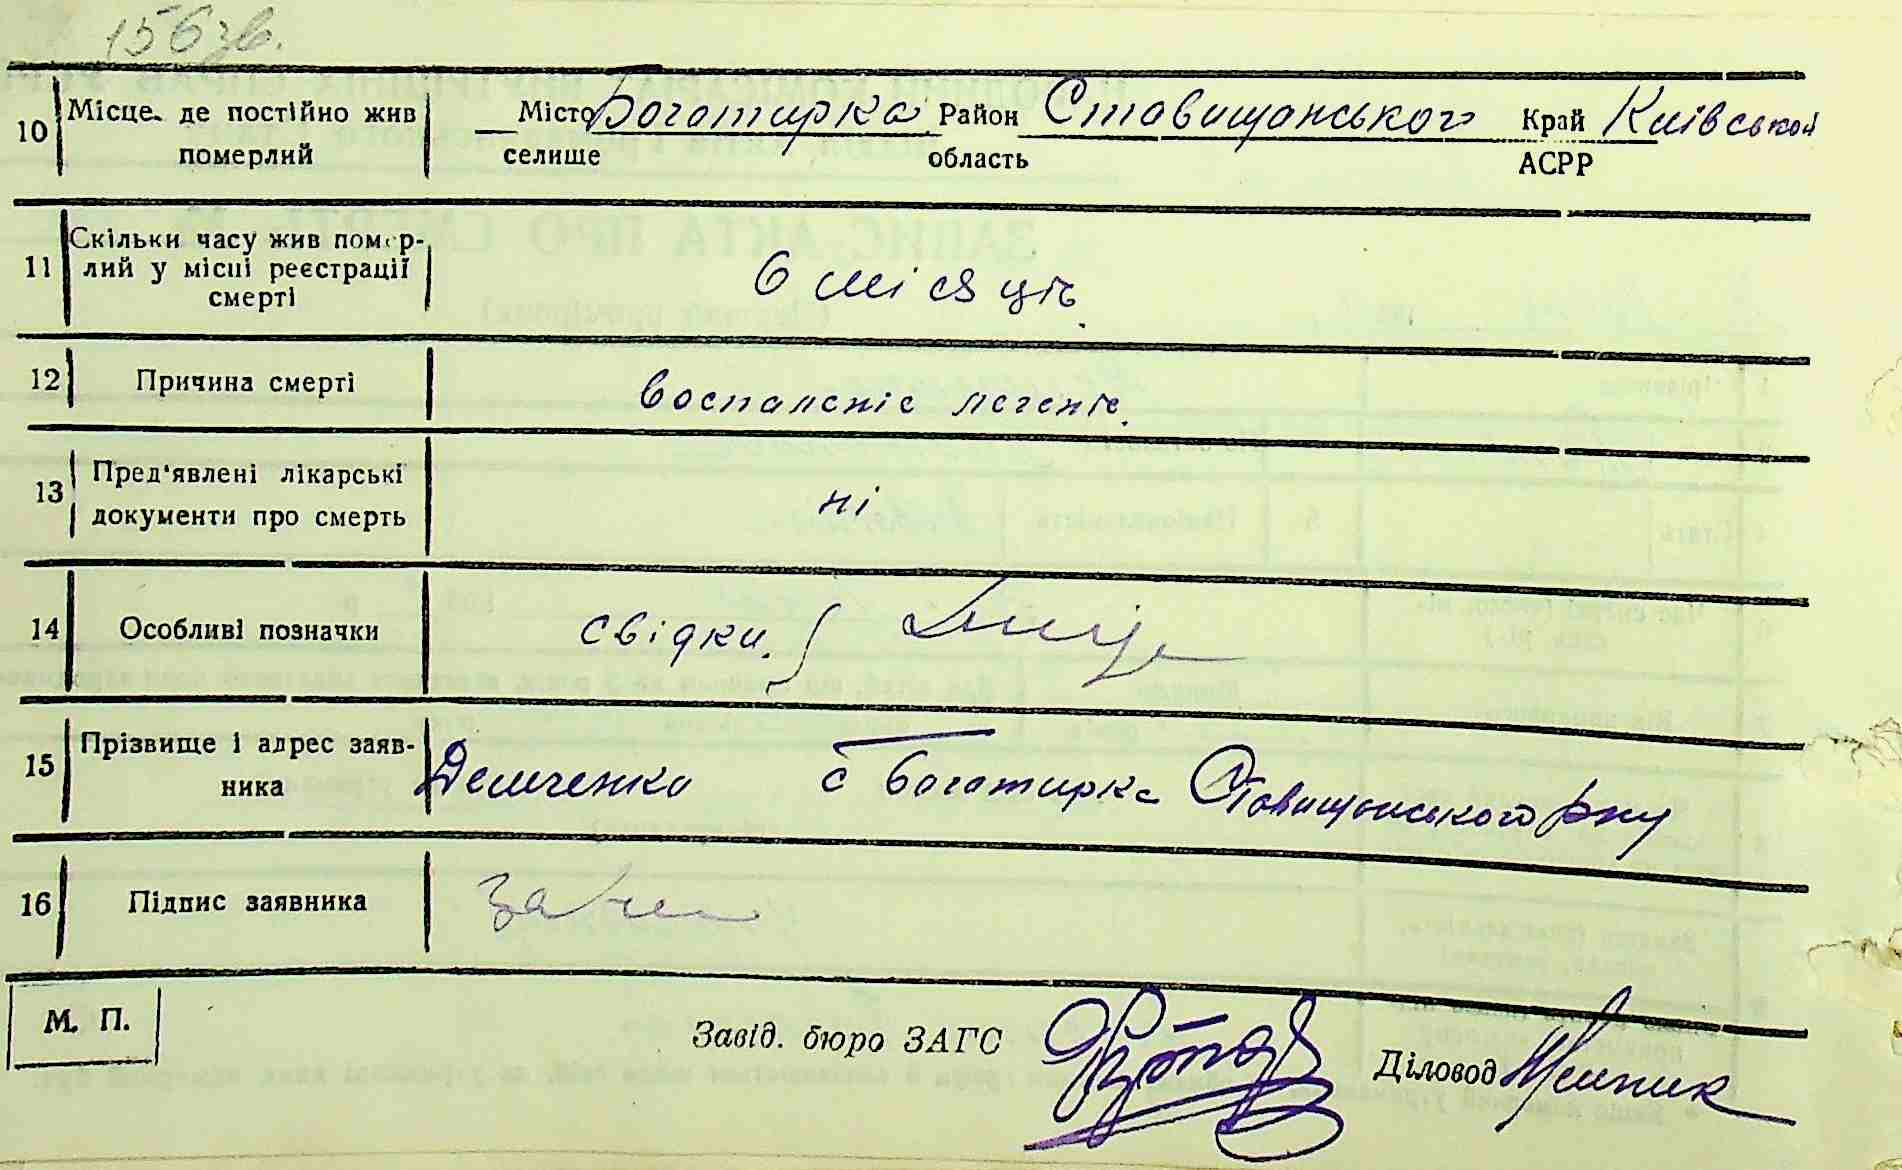 156зв.
10 Місце де постійно жив померлий Місто селище Богатирка Район область Ставищанського Край АСРР Київської
11 Скільки часу жив помер-
лий у місці реєстрації
смерті
6 місяців
12 Причина смерті воспаленіє легенів.
13 Пред'явлені лікарські
документи про смерть
ні
14 Особливі позначки свідки.
15 Прізвище і адрес заяв-
ника
Демченко с Богатирка Ставищанського р-ну
16 Підпис заявника
М. П.
Завід. бюро ЗАГС Діловод